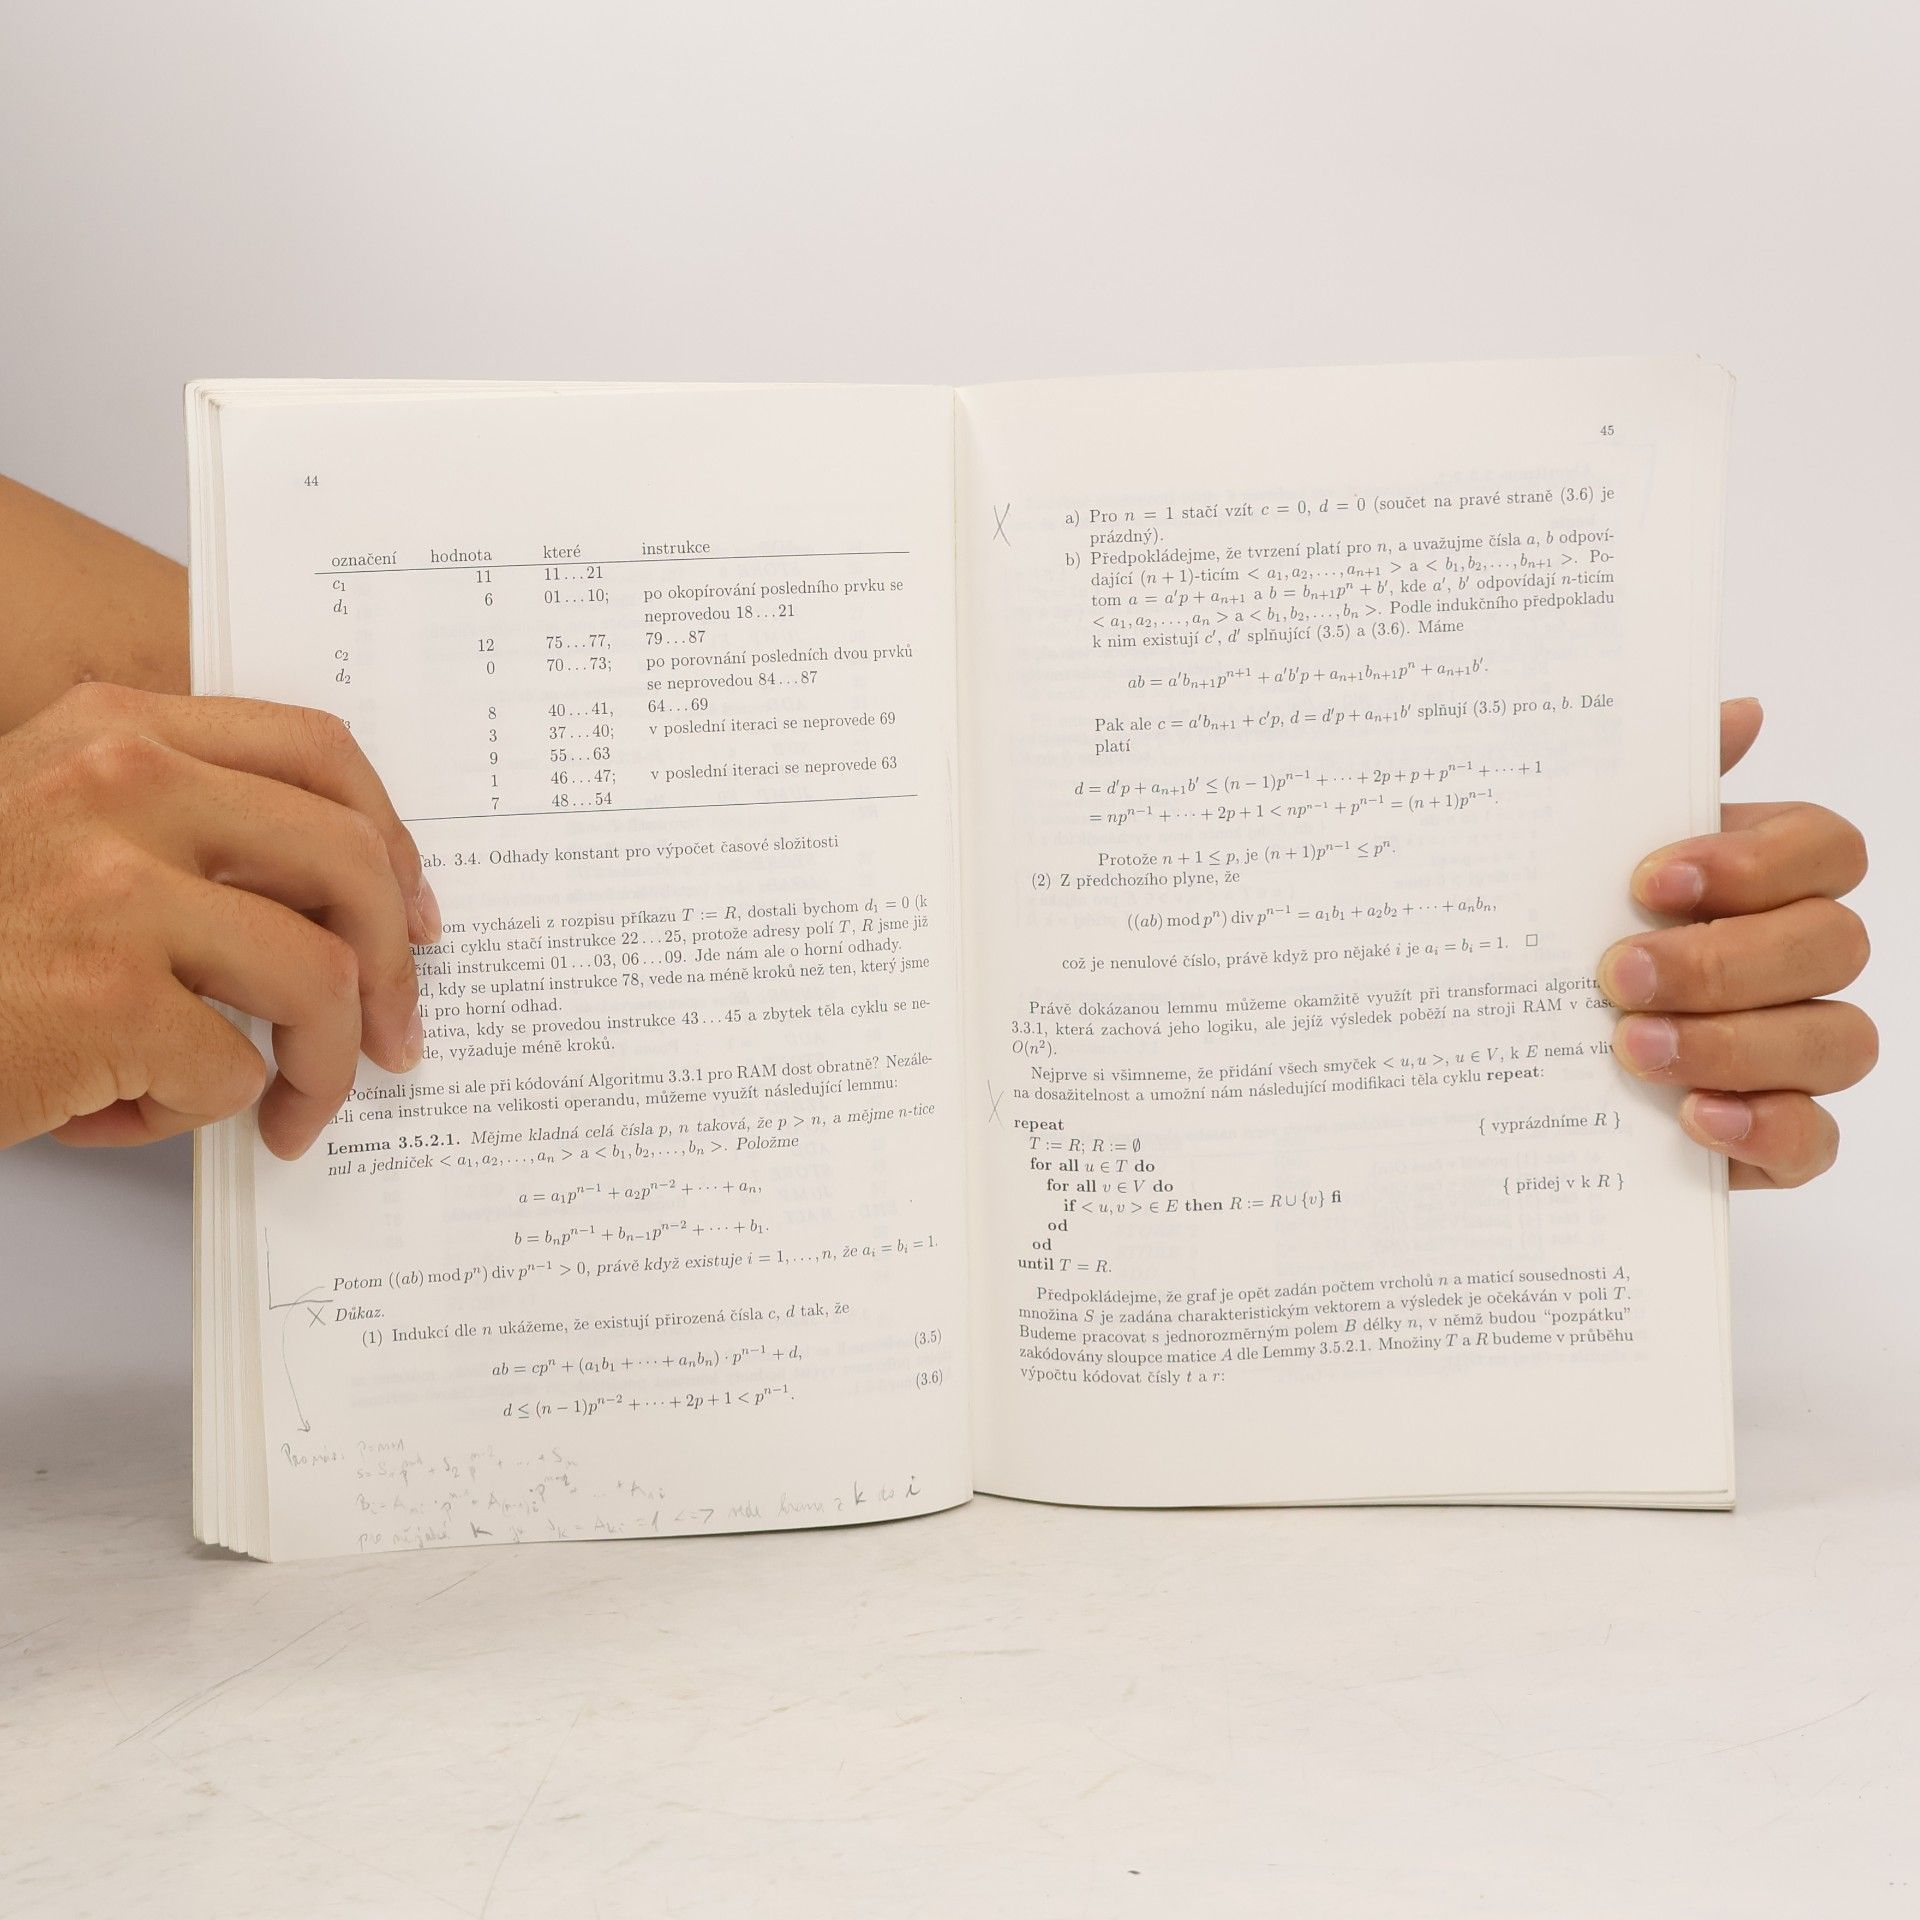 44
označení hodnota které instrukce
c₁ 11 11...21
d₁ 6 01...10; po okopírování posledního prvku se
neprovedou 18...21
c₂ 12 75...77, 79...87
d₂ 0 70...73; po porovnání posledních dvou prvků
se neprovedou 84...87
8 40...41, 64...69
3 37...40; v poslední iteraci se neprovede 69
9 55...63
1 46...47; v poslední iteraci se neprovede 63
7 48...54
ab. 3.4. Odhady konstant pro výpočet časové složitosti
om vycházeli z rozpisu příkazu T := R, dostali bychom d₁ = 0 (k
alizaci cyklu stačí instrukce 22...25, protože adresy polí T, R jsme již
čítali instrukcemi 01...03, 06...09. Jde nám ale o horní odhady.
d, kdy se uplatní instrukce 78, vede na méně kroků než ten, který jsme
li pro horní odhad.
nativa, kdy se provedou instrukce 43...45 a zbytek těla cyklu se ne-
de, vyžaduje méně kroků.
Počínali jsme si ale při kódování Algoritmu 3.3.1 pro RAM dost obratně? Nezále-
í-li cena instrukce na velikosti operandu, můžeme využít následující lemmu:
Lemma 3.5.2.1. Mějme kladná celá čísla p, n taková, že p > n, a mějme n-tice
nul a jedniček < a₁, a₂, ..., aₙ > a < b₁, b₂, ..., bₙ >. Položme
a = a₁pⁿ⁻¹ + a₂pⁿ⁻² + ··· + aₙ,
b = bₙpⁿ⁻¹ + bₙ₋₁pⁿ⁻² + ··· + b₁.
Potom ((ab) mod pⁿ) div pⁿ⁻¹ > 0, právě když existuje i = 1, ..., n, že aᵢ = bᵢ = 1.
Důkaz.
(1) Indukcí dle n ukážeme, že existují přirozená čísla c, d tak, že
ab = cpⁿ + (a₁b₁ + ··· + aₙbₙ) · pⁿ⁻¹ + d, (3.5)
d ≤ (n − 1)pⁿ⁻² + ··· + 2p + 1 < pⁿ⁻¹. (3.6)
k do i
45
a) Pro n = 1 stačí vzít c = 0, d = 0 (součet na pravé straně (3.6) je
prázdný).
b) Předpokládejme, že tvrzení platí pro n, a uvažujme čísla a, b odpoví-
dající (n + 1)-ticím < a₁, a₂, ..., aₙ₊₁ > a < b₁, b₂, ..., bₙ₊₁ >. Po-
tom a = a′p + aₙ₊₁ a b = bₙ₊₁pⁿ + b′, kde a′, b′ odpovídají n-ticím
< a₁, a₂, ..., aₙ > a < b₁, b₂, ..., bₙ >. Podle indukčního předpokladu
k nim existují c′, d′ splňující (3.5) a (3.6). Máme
ab = a′bₙ₊₁pⁿ⁺¹ + a′b′p + aₙ₊₁bₙ₊₁pⁿ + aₙ₊₁b′.
Pak ale c = a′bₙ₊₁ + c′p, d = d′p + aₙ₊₁b′ splňují (3.5) pro a, b. Dále
platí
d = d′p + aₙ₊₁b′ ≤ (n − 1)pⁿ⁻¹ + ··· + 2p + p + pⁿ⁻¹ + ··· + 1
= npⁿ⁻¹ + ··· + 2p + 1 < npⁿ⁻¹ + pⁿ⁻¹ = (n + 1)pⁿ⁻¹.
Protože n + 1 ≤ p, je (n + 1)pⁿ⁻¹ ≤ pⁿ.
(2) Z předchozího plyne, že
((ab) mod pⁿ) div pⁿ⁻¹ = a₁b₁ + a₂b₂ + ··· + aₙbₙ,
což je nenulové číslo, právě když pro nějaké i je aᵢ = bᵢ = 1. □
Právě dokázanou lemmu můžeme okamžitě využít při transformaci algorit
3.3.1, která zachová jeho logiku, ale jejíž výsledek poběží na stroji RAM v čase
O(n²).
Nejprve si všimneme, že přidání všech smyček < u, u >, u ∈ V, k E nemá vliv
na dosažitelnost a umožní nám následující modifikaci těla cyklu repeat:
repeat
T := R; R := ∅ { vyprázdníme R }
for all u ∈ T do
for all v ∈ V do
if < u, v > ∈ E then R := R ∪ {v} fi { přidej v k R }
od
od
until T = R.
Předpokládejme, že graf je opět zadán počtem vrcholů n a maticí sousednosti A,
množina S je zadána charakteristickým vektorem a výsledek je očekáván v poli T.
Budeme pracovat s jednorozměrným polem B délky n, v němž budou “pozpátku”
zakódovány sloupce matice A dle Lemmy 3.5.2.1. Množiny T a R budeme v průběhu
výpočtu kódovat čísly t a r: